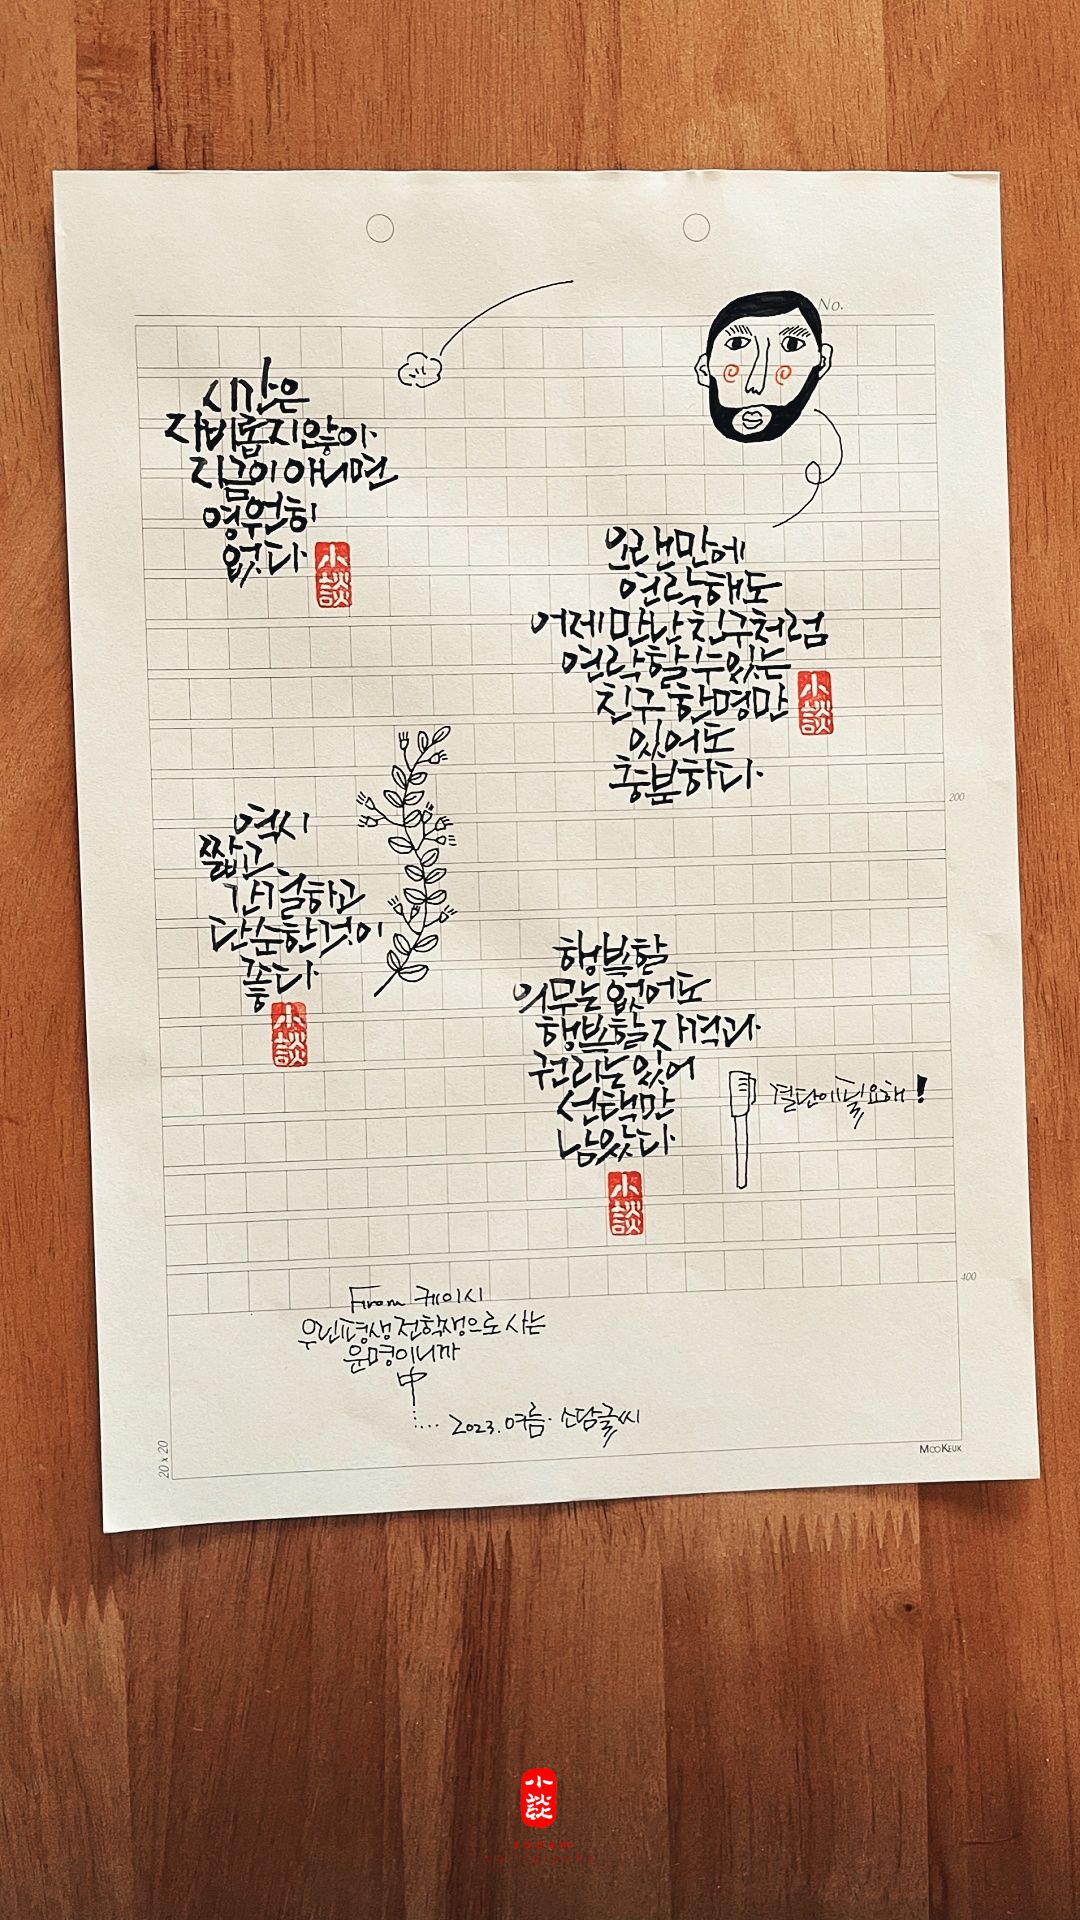 No.
시간은
자비롭지 않아.
지금이 아니면
영원히
없다
小談
오랜만에
연락해도
어제 만난 친구처럼
연락할 수 있는
친구 한 명만
있어도
충분하다.
小談
200
역시
짧고
간결하고
단순한 것이
좋다
小談
행복할
의무는 없어도
행복할 자격과
권리는 있어
선택만
남았다
小談
결단이 필요해!
400
From 케이시
우린 평생 전학생으로 사는
운명이니까
中
2023. 여름. 소담글씨
20 x 20
MOOKEUK
小談